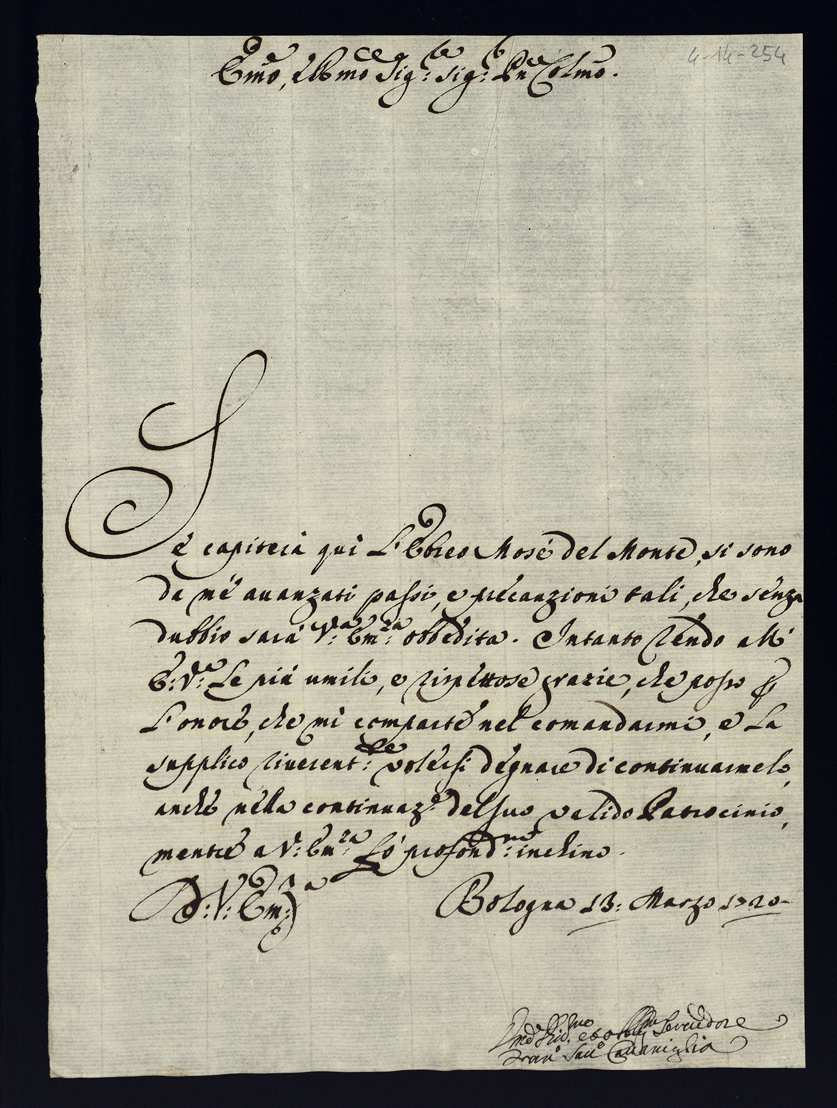 4-14-254
Emo, e Rmo Sig.re Sig.re Pñe Colmo.
Sè capiterà quì L'Ebreo Mosè del Monte, si sono
da mè auanzati passi, e precauzioni tali, che senza
dubbio sarà V.a Em.za obbedita. Intanto rendo all'
E: V.a Le più umili, e rispettose grazie, che posso p
L'onore, che mi comparte nel comandarmi, e La
supplico riuerent.te volersi degnare di continuarmelo,
anche nella continuaz.e del suo valido Patrocinio,
mentre a V: Em.za Fò profond.mo inchino.
D: V: Em.za
Bologna 13: Marzo 1720
Seruidore
Fran.o Cauaniglia